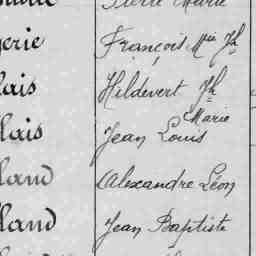 Pierre Marie
erie François Mie Jh
lais Hildevert Jh
Marie
lais Jean Louis
land Alexandre Léon
land Jean Baptiste